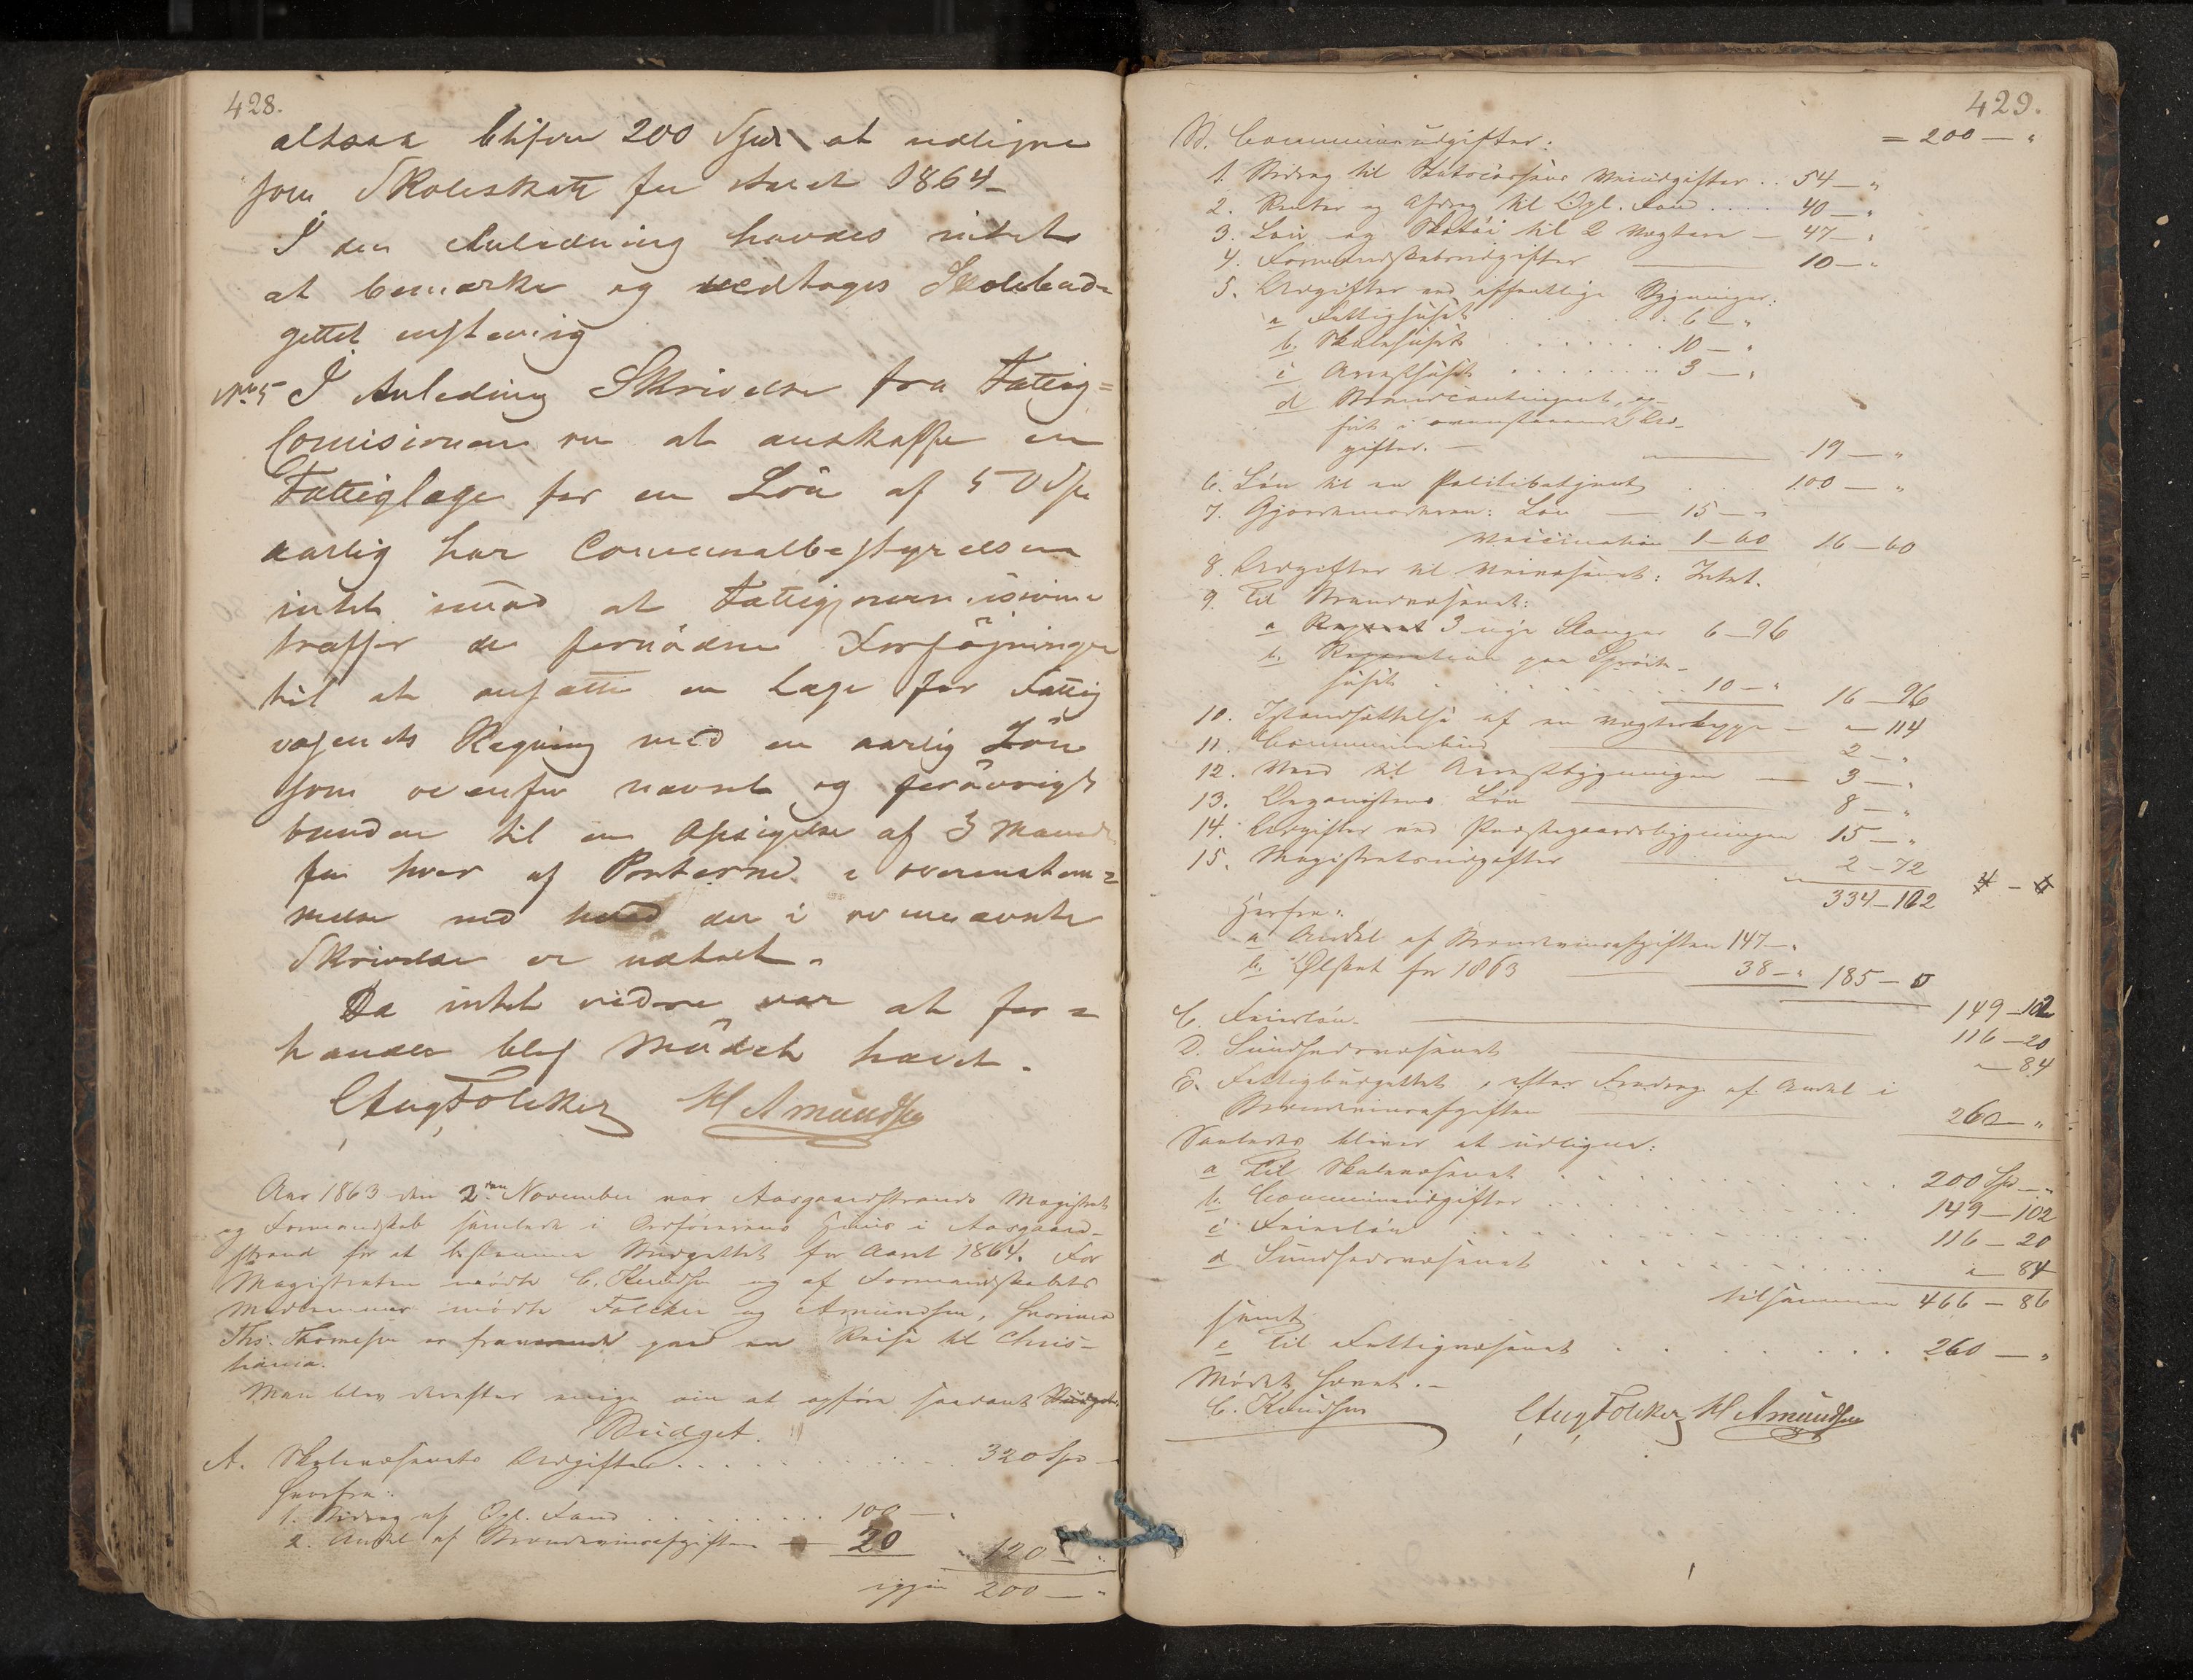 428.
altsaa bliver 200 Spd at udligne
som Skoleskatt for Aaret 1864
I den Anledning havdes intet
at bemærke og vedtoges Skolebud-
gettet enstemig
No 5 I Anledning Skrivelse fra Fattig=
Comisionen om at anskaffe en
Fattiglæge for en Lön af 50 Spd
aarlig har Communalbestyrelsen
intet imod at Fattigcommisionen
træffer de fornödne Forföjninger
til at ansætte en Læge for Fattig
væsenets Regning med en aarlig Lön
som ovenfor nævnt og forövrigt
bunden til en Opsigelse af 3 Maaneder
for hver af Parterne i overenstem=
melse med hvad der i ovennævnte
Skrivelse er vedtaet.
Da intet videre var at for=
handle blev Mödet hævet.
C Aug Foleker H Amundsen
Aar 1863 den 2den November var Aasgaardstrands Magistrat
og Formandskab samlede i Ordförerens Huus i Aasgaard-
strand for at bestemme Budgettet for Aaret 1864. For
Magistraten mödte C. Knudsen og af Formandskabets
Medlemmer mödte Foleker og Amundsen, hvorimod
Ths. Thomesen er fraværende paa en Reise til Chris-
tiania.
Man blev derefter enige om at opföre saadant Budget
Budget.
A. Skolevæsenets Udgifter . . . . 320 Spd —
hvorfra:
1. Bidrag af Opl. Fond . . . . 100 — "
2. Andel af Brændeviinsafgiften — 20 120 — "
igjen 200 — "
429.
= 200 — "
B. Communeudgifter:
1. Bidrag til Statscassens Veiudgifter . . 54 — "
2. Renter og Afdrag til Opl. Fond . . . . 40 — "
3. Lön og Skotöi til 2 Vægtere — 47 — "
4. Formandskabsudgifter — 10 — "
5. Udgifter ved offentlige Bygninger:
a Fattighuset . . . . 6 — "
b. Skolehuset . . . . 10 — "
c Arresthuset . . . . 3 — "
d Brandcontingent, op-
fört i ovenstaaende Ud-
gifter. — 19 — "
6. Lön til en Politibetjent . . . 100 — "
7. Gjordemoderen: Lön — 15 — "
Vaccination 1 — 60 16 — 60
8. Udgifter til Veivæsenet: Intet.
9. Til Brandvæsenet:
a Reparat 3 nye Slanger 6 — 96
b. Reparation paa Spröite-
huset . . . . 10 — " 16 — 96
10. Istandsættelse af en Vægterkappe — " — 114
11. Communebud — 2 — "
12. Ved til Arrestbygningen — 3 — "
13. Organistens Lön — 8 — "
14. Udgifter ved Præstegaardsbygningen 15 — "
15. Magistratsudgifter — 2 — 72
334 — 102
Herfra:
a Andel af Brændeviinsafgiften 147 — "
b. Ølskat for 1863 — 38 — " 185 — 0
149 — 102
C. Feierlön — 116 — 20
D. Sundhedsvæsenet " — 84
E. Fattigbudgettet, efter Fradrag af Andel i
Brændeviinsafgiften — 260 — "
Saaledes bliver at udligne:
a Til Skolevæsenet . . . . 200 Spd — "
b. Communeudgifter . . . . 149 — 102
c Feierlön . . . . 116 — 20
d Sundhedsvæsenet . . . . " — 84
tilsammen 466 — 86
samt
e Til Fattigvæsenet . . . . 260 — "
Mödet hævet. —
C. Knudsen C Aug Foleker H Amundsen